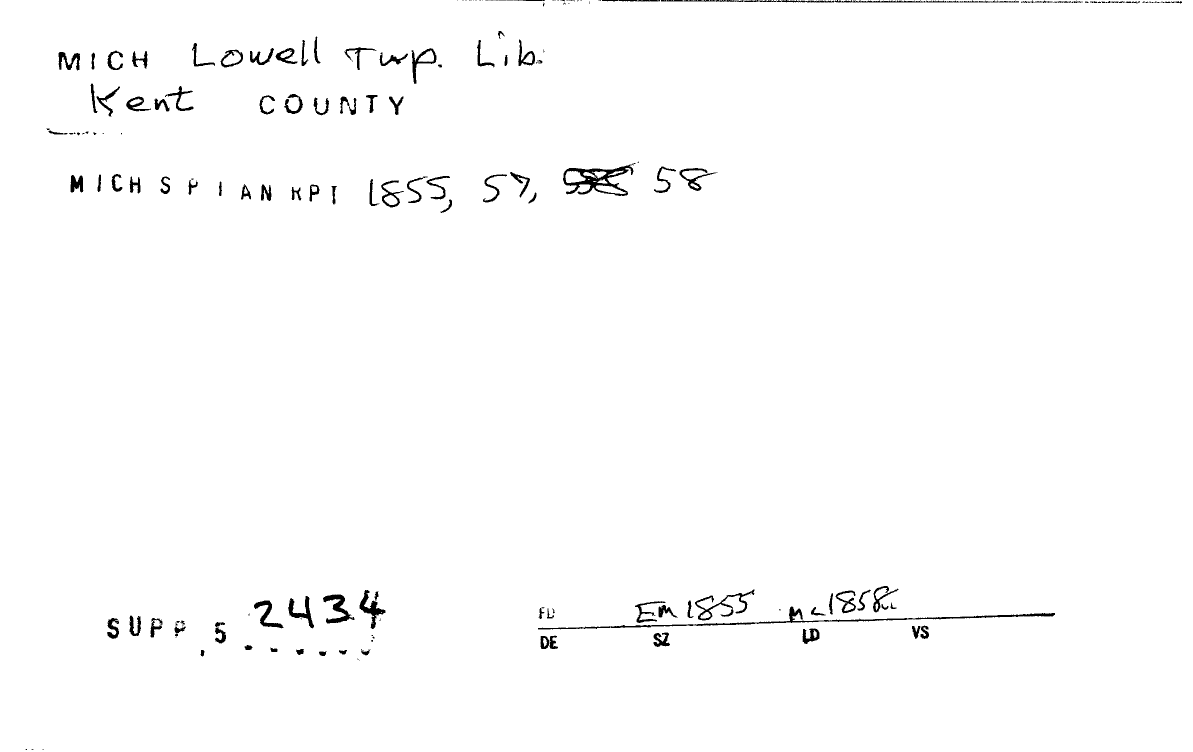 MICH Lowell Twp. Lib.
Kent COUNTY
MICH S P I AN RPT 1855, 57, 58
SUPP 5 2434
FD Em 1855 1858
DE SZ LD VS